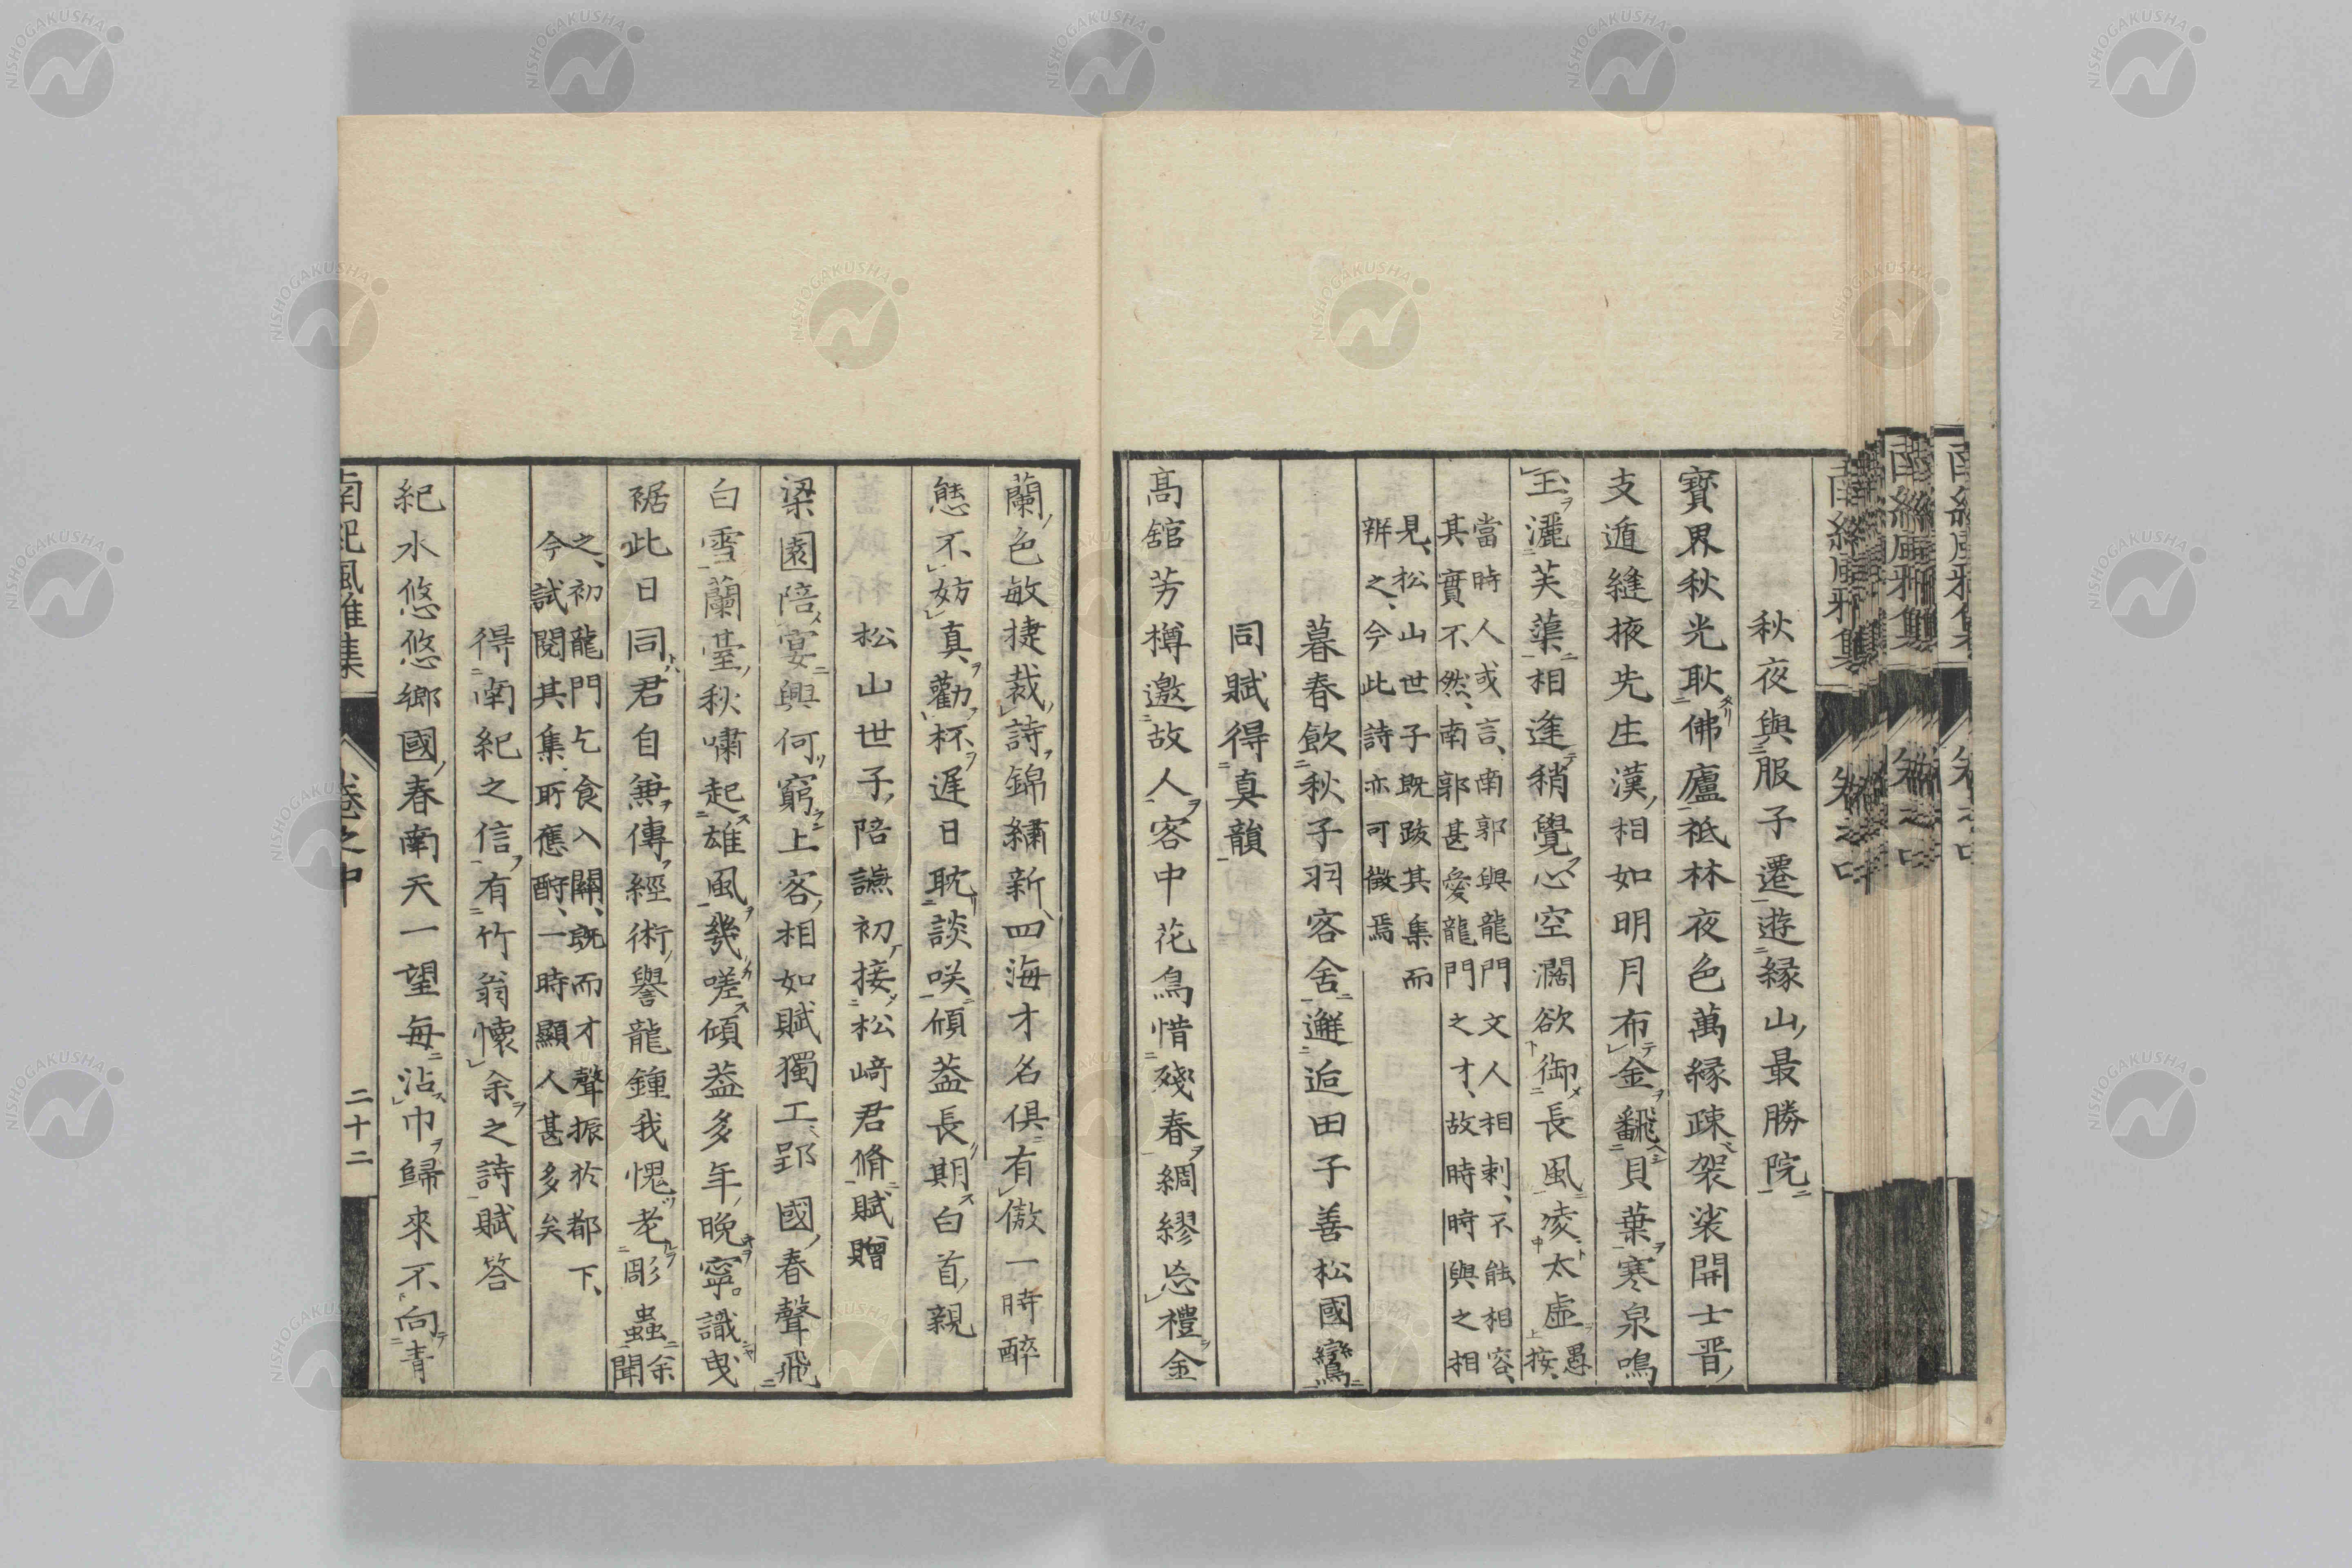 秋夜與服子遷遊緣山最勝院
寶界秋光耿佛廬祗林夜色萬緣疎袈裟開士晋
支遁縫掖先生漢相如明月布金翻貝葉寒泉鳴
玉灑芙蕖相逢稍覺心空濶欲御長風凌太虛愚按
當時人或言南郭與龍門文人相刺不能相容
其實不然南郭甚愛龍門之才故時時與之相
見松山世子既跋其集而
辨之今此詩亦可徵焉
暮春飲秋子羽客舍邂逅田子善松國鸞
同賦得真韻
高舘芳樽邀故人客中花鳥惜殘春綢繆忘禮金
蘭色敏捷裁詩錦繡新四海才名俱有傲一時醉
態不妨真勸杯遲日耽談咲傾蓋長期白首親
松山世子陪讌初接松﨑君脩賦贈
梁園陪宴興何窮上客相如賦獨工郢國春聲飛
白雪蘭臺秋嘯起雄風幾嗟傾蓋多年晚寧識曳
裾此日同君自兼傳經術譽龍鍾我愧老彫蟲余聞
之初龍門乞食入關既而才聲振於都下
今試閱其集所應酧一時顯人甚多矣
得南紀之信有竹翁懷余之詩賦答
紀水悠悠鄉國春南天一望每沾巾歸來不向青
南紀風雅集 卷之中 二十二